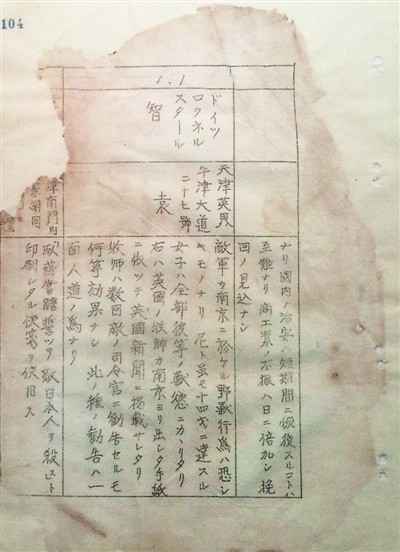 104
1.1
ドイツ
ロクネル
スタール
智
天津英界
牛津大道
二十七號
袁
ナリ國内ノ治安ハ短期間ニ恢復スルコトハ
至難ナリ商工業ノ不振ハ日ニ倍加シ挽
回ノ見込ナシ
敵軍ノ南京ニ於ケル野獣行為ハ恐シ
キモノナリ 尼ト虽モ十四才ニ達スル
女子ハ全部彼等ノ獣慾ニカヽリタリ
右ハ英国ノ牧師カ南京ヨリ出シタ手紙
ニ依ツテ英國新聞ニ掲載サレタリ
牧師ハ数回敵ノ司令官ニ勧告セルモ
何等効果ナシ 此ノ種ノ勧告ハ一
面人道ノ為ナリ
津南門内
胡同
「臥薪嘗膽誓ツテ敵日本人ヲ殺ス」ト
印刷シタル便箋ヲ使用ス